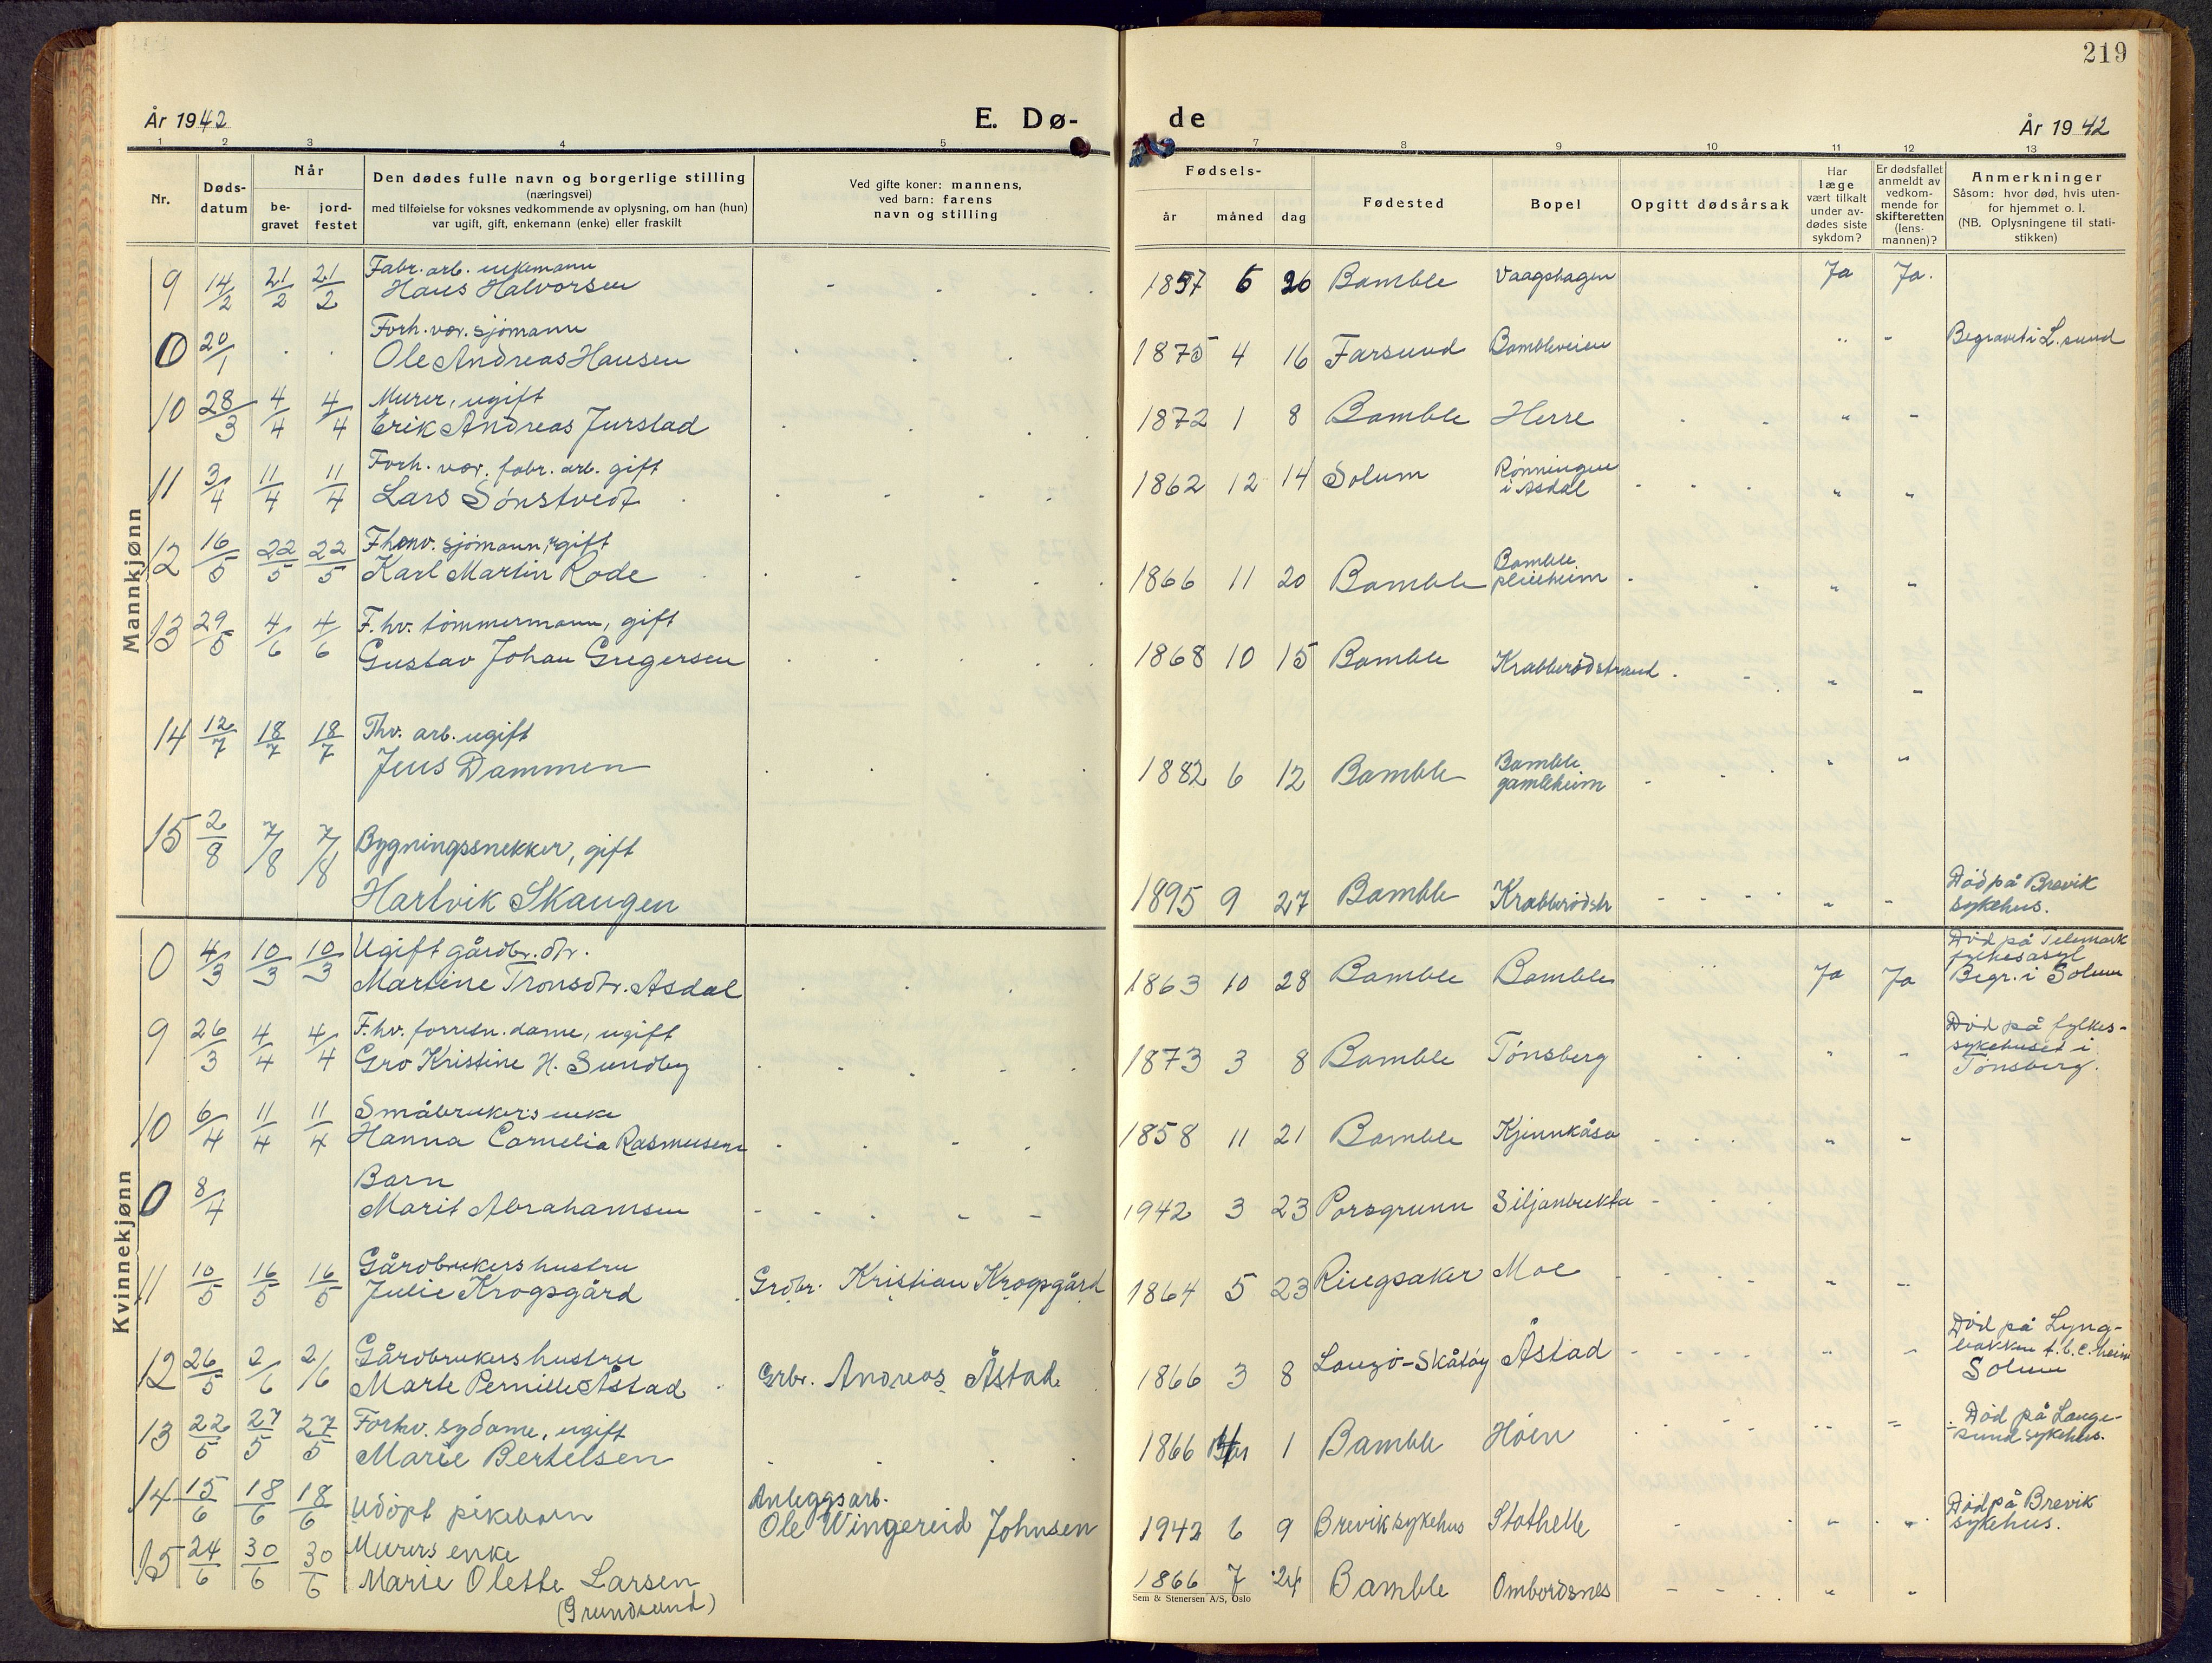 219
År 1942
E. Dø-
de
År 1942
1 2 3 4 5
7 8 9 10 11 12 13
Nr.
Døds-
datum
Når
be-
gravet
jord-
festet
Den dødes fulle navn og borgerlige stilling
(næringsvei)
med tilføielse for voksnes vedkommende av oplysning, om han (hun)
var ugift, gift, enkemann (enke) eller fraskilt
Ved gifte koner: mannens,
ved barn: farens
navn og stilling
Fødsels-
år måned dag
Fødested
Bopel
Opgitt dødsårsak
Har
læge
vært tilkalt
under av-
dødes siste
sykdom?
Er dødsfallet
anmeldt av
vedkom-
mende for
skifteretten
(lens-
mannen)?
Anmerkninger
Såsom: hvor død, hvis uten-
for hjemmet o. l.
(NB. Oplysningene til stati-
stikken)
Mannkjønn
9 14/2 21/2 21/2 Fabr. arb. enkemann
Hans Halvorsen
1857 6 26 Bamble Vaagshagen Ja Ja.
0 20/1 Forh. vær. sjømann
Ole Andreas Hansen
1875 4 16 Farsund Bambleveien " - Begravet i L.sund
10 28/3 4/4 4/4 Murer, ugift
Erik Andreas Furstad
1872 1 8 Bamble Herre " -
11 3/4 11/4 11/4 Forh. vær. fabr. arb. gift
Lars Sønstvedt
1862 12 14 Solum Rønningen
i Asdal " "
12 16/5 22/5 22/5 Fhenv. sjømann, gift
Karl Martin Rode
1866 11 20 Bamble Bamble
pleieheim " "
13 29/5 4/6 4/6 F. hv. tømmermann, gift
Gustav Johan Gregersen
1868 10 15 Bamble Krabberødstrand " -
14 12/7 18/7 18/7 Fhv. arb. ugift
Jens Dammen
1882 6 12 Bamble Bamble
gamleheim " "
15 2/8 7/8 7/8 Bygningssnekker, gift
Hartvik Skaugen
1895 9 27 Bamble Krabberødstr " - Død på Brevik
sykehus.
Kvinnekjønn
0 4/3 10/3 10/3 Ugift gårdbr. dtr.
Martine Tronsdtr. Asdal
1863 10 28 Bamble Bamble Ja Ja Død på Telemark
fylkesasyl
Begr. i Solum
9 26/3 4/4 4/4 F. hv. forretn. dame, ugift
Gro Kristine H. Sundby
1873 3 8 Bamble Tønsberg " " Død på fylkes-
sykehuset i
Tønsberg.
10 6/4 11/4 11/4 Småbrukers enke
Hanna Cornelia Rasmussen
1858 11 21 Bamble Kjinnkåsa " -
0 8/4 Barn
Marit Abrahamsen
1942 3 23 Porsgrunn Siljanbukta
11 10/5 16/5 16/5 Gårdbrukers hustru
Julie Krogsgård
Grdbr. Kristian Krogsgård
1864 5 23 Ringsaker Moe " -
12 26/5 2/6 2/6 Gårdbrukers hustru
Marte Pernille Åstad
Grbr. Andreas Åstad
1866 3 8 Langø-Skåtøy Åstad " " Død på Lyng-
bakken t.b.c. heim
Solum
13 22/5 27/5 27/5 Forhv. sydame, ugift
Marie Bertelsen
1866 1 Bamble Høen " = Død på Lange-
sund sykehus.
14 15/6 18/6 18/6 Udøpt pikebarn
Anleggsarb.
Ole Wingereid Johnsen
1942 6 9 Brevik sykehus Stathelle " " Død på Brevik
sykehus.
15 24/6 30/6 30/6 Murers enke
Marie Olette Larsen
(Grundsund)
1866 7 24 Bamble Ombordsnes " "
Sem & Stenersen A/S, Oslo